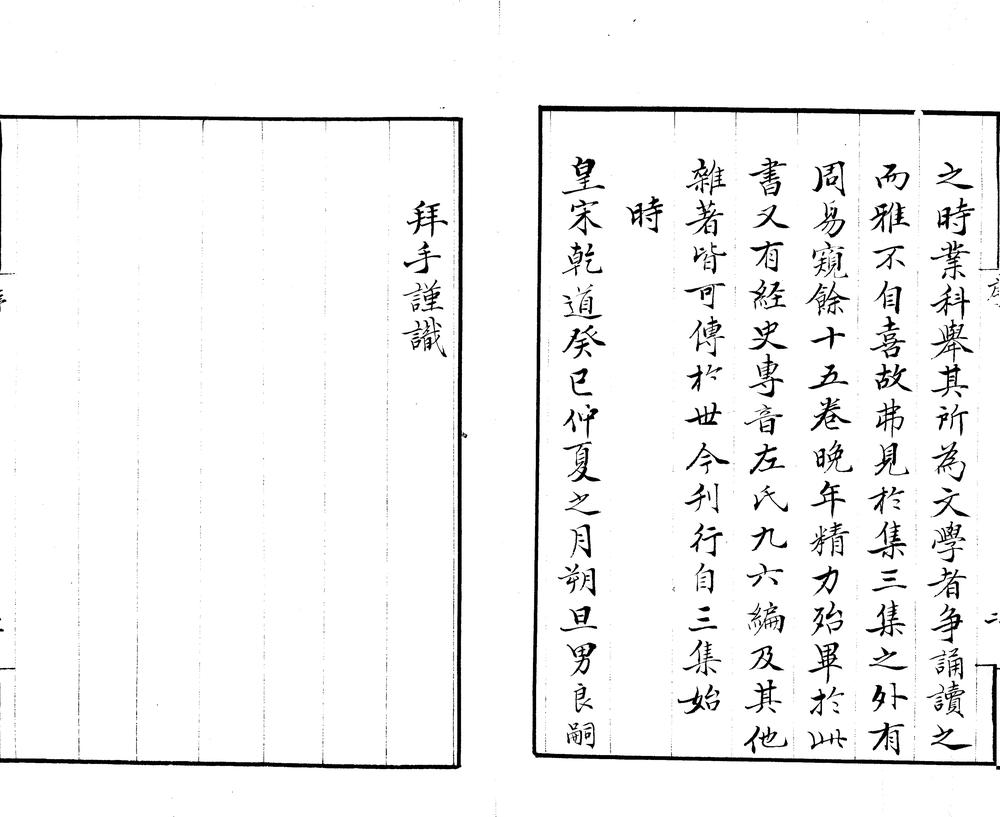 之時業科舉其所為文學者争誦讀之
而雅不自喜故弗見於集三集之外有
周易窺餘十五卷晚年精力殆畢於此
書又有経史專音左氏九六編及其他
雜著皆可傳於世今刋行自三集始
時
皇宋乾道癸巳仲夏之月朔旦男良嗣
拜手謹識